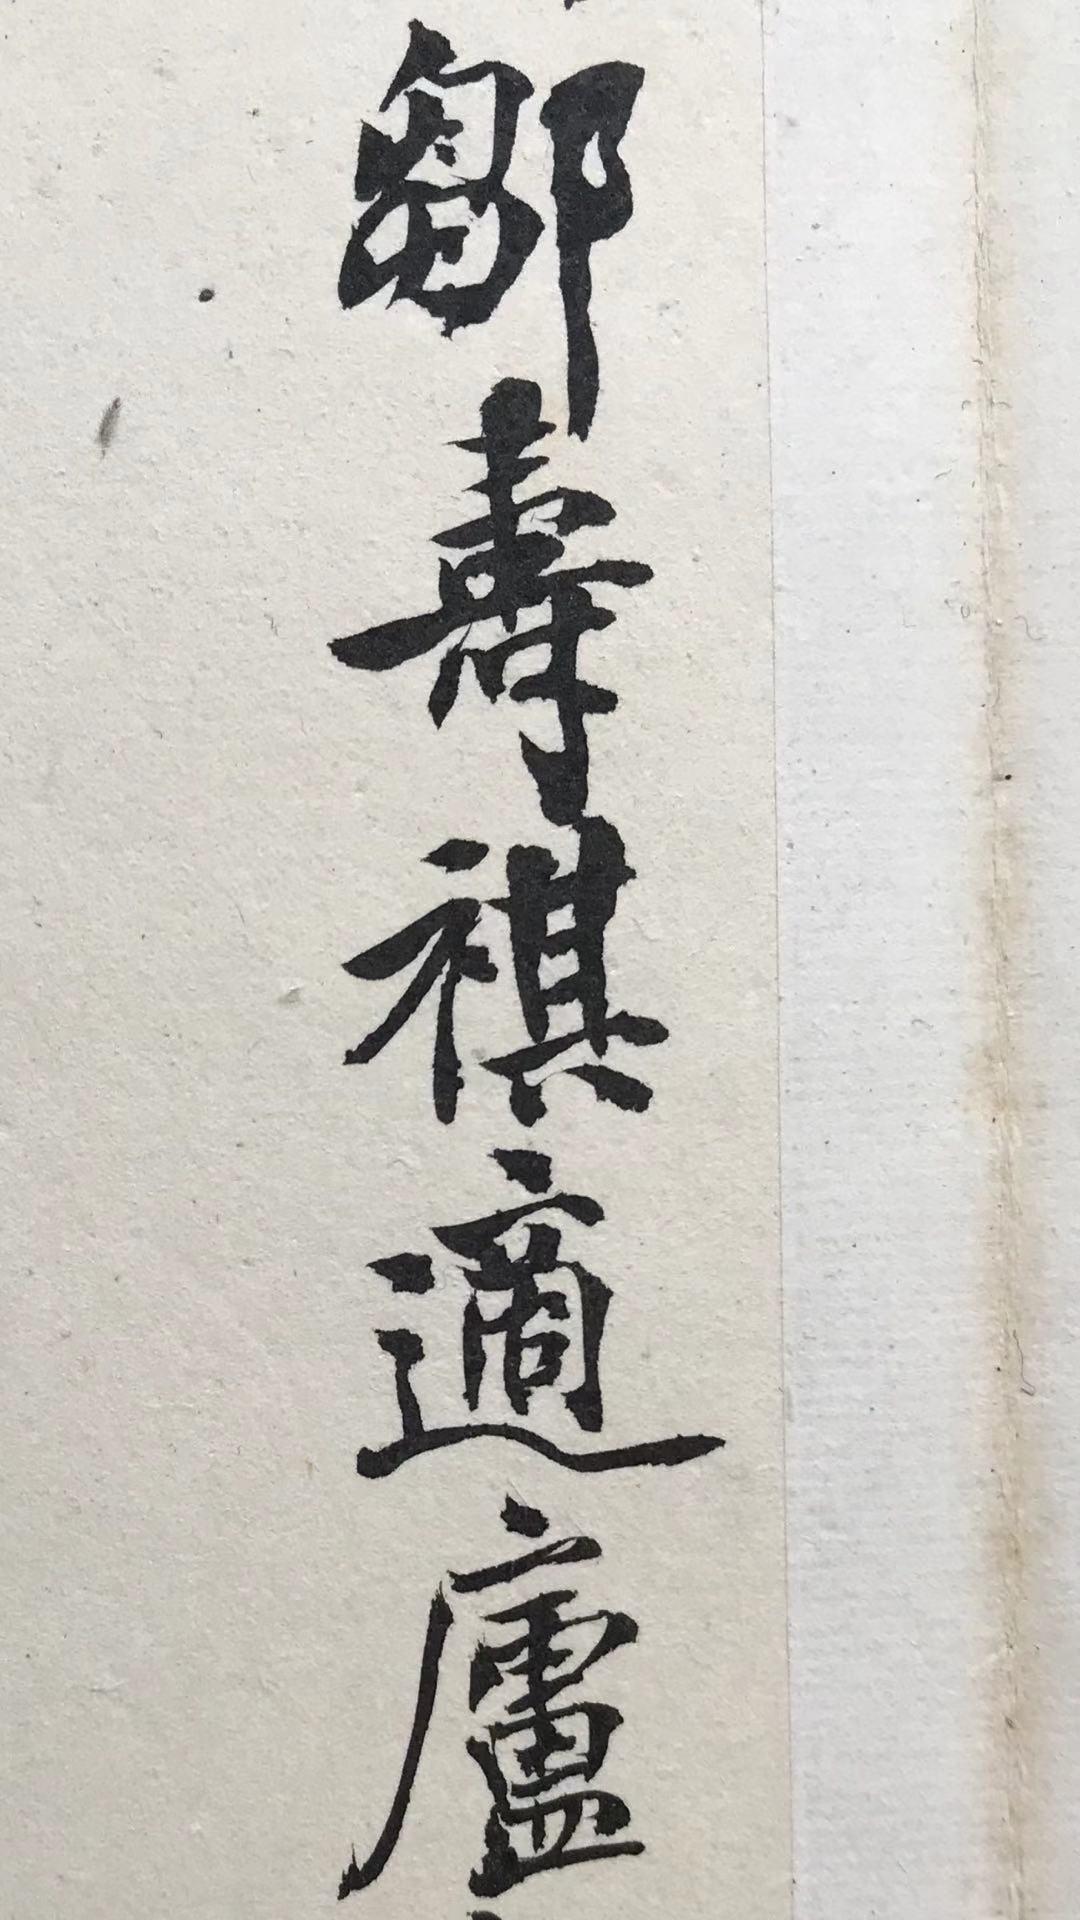 鄒壽祺適廬